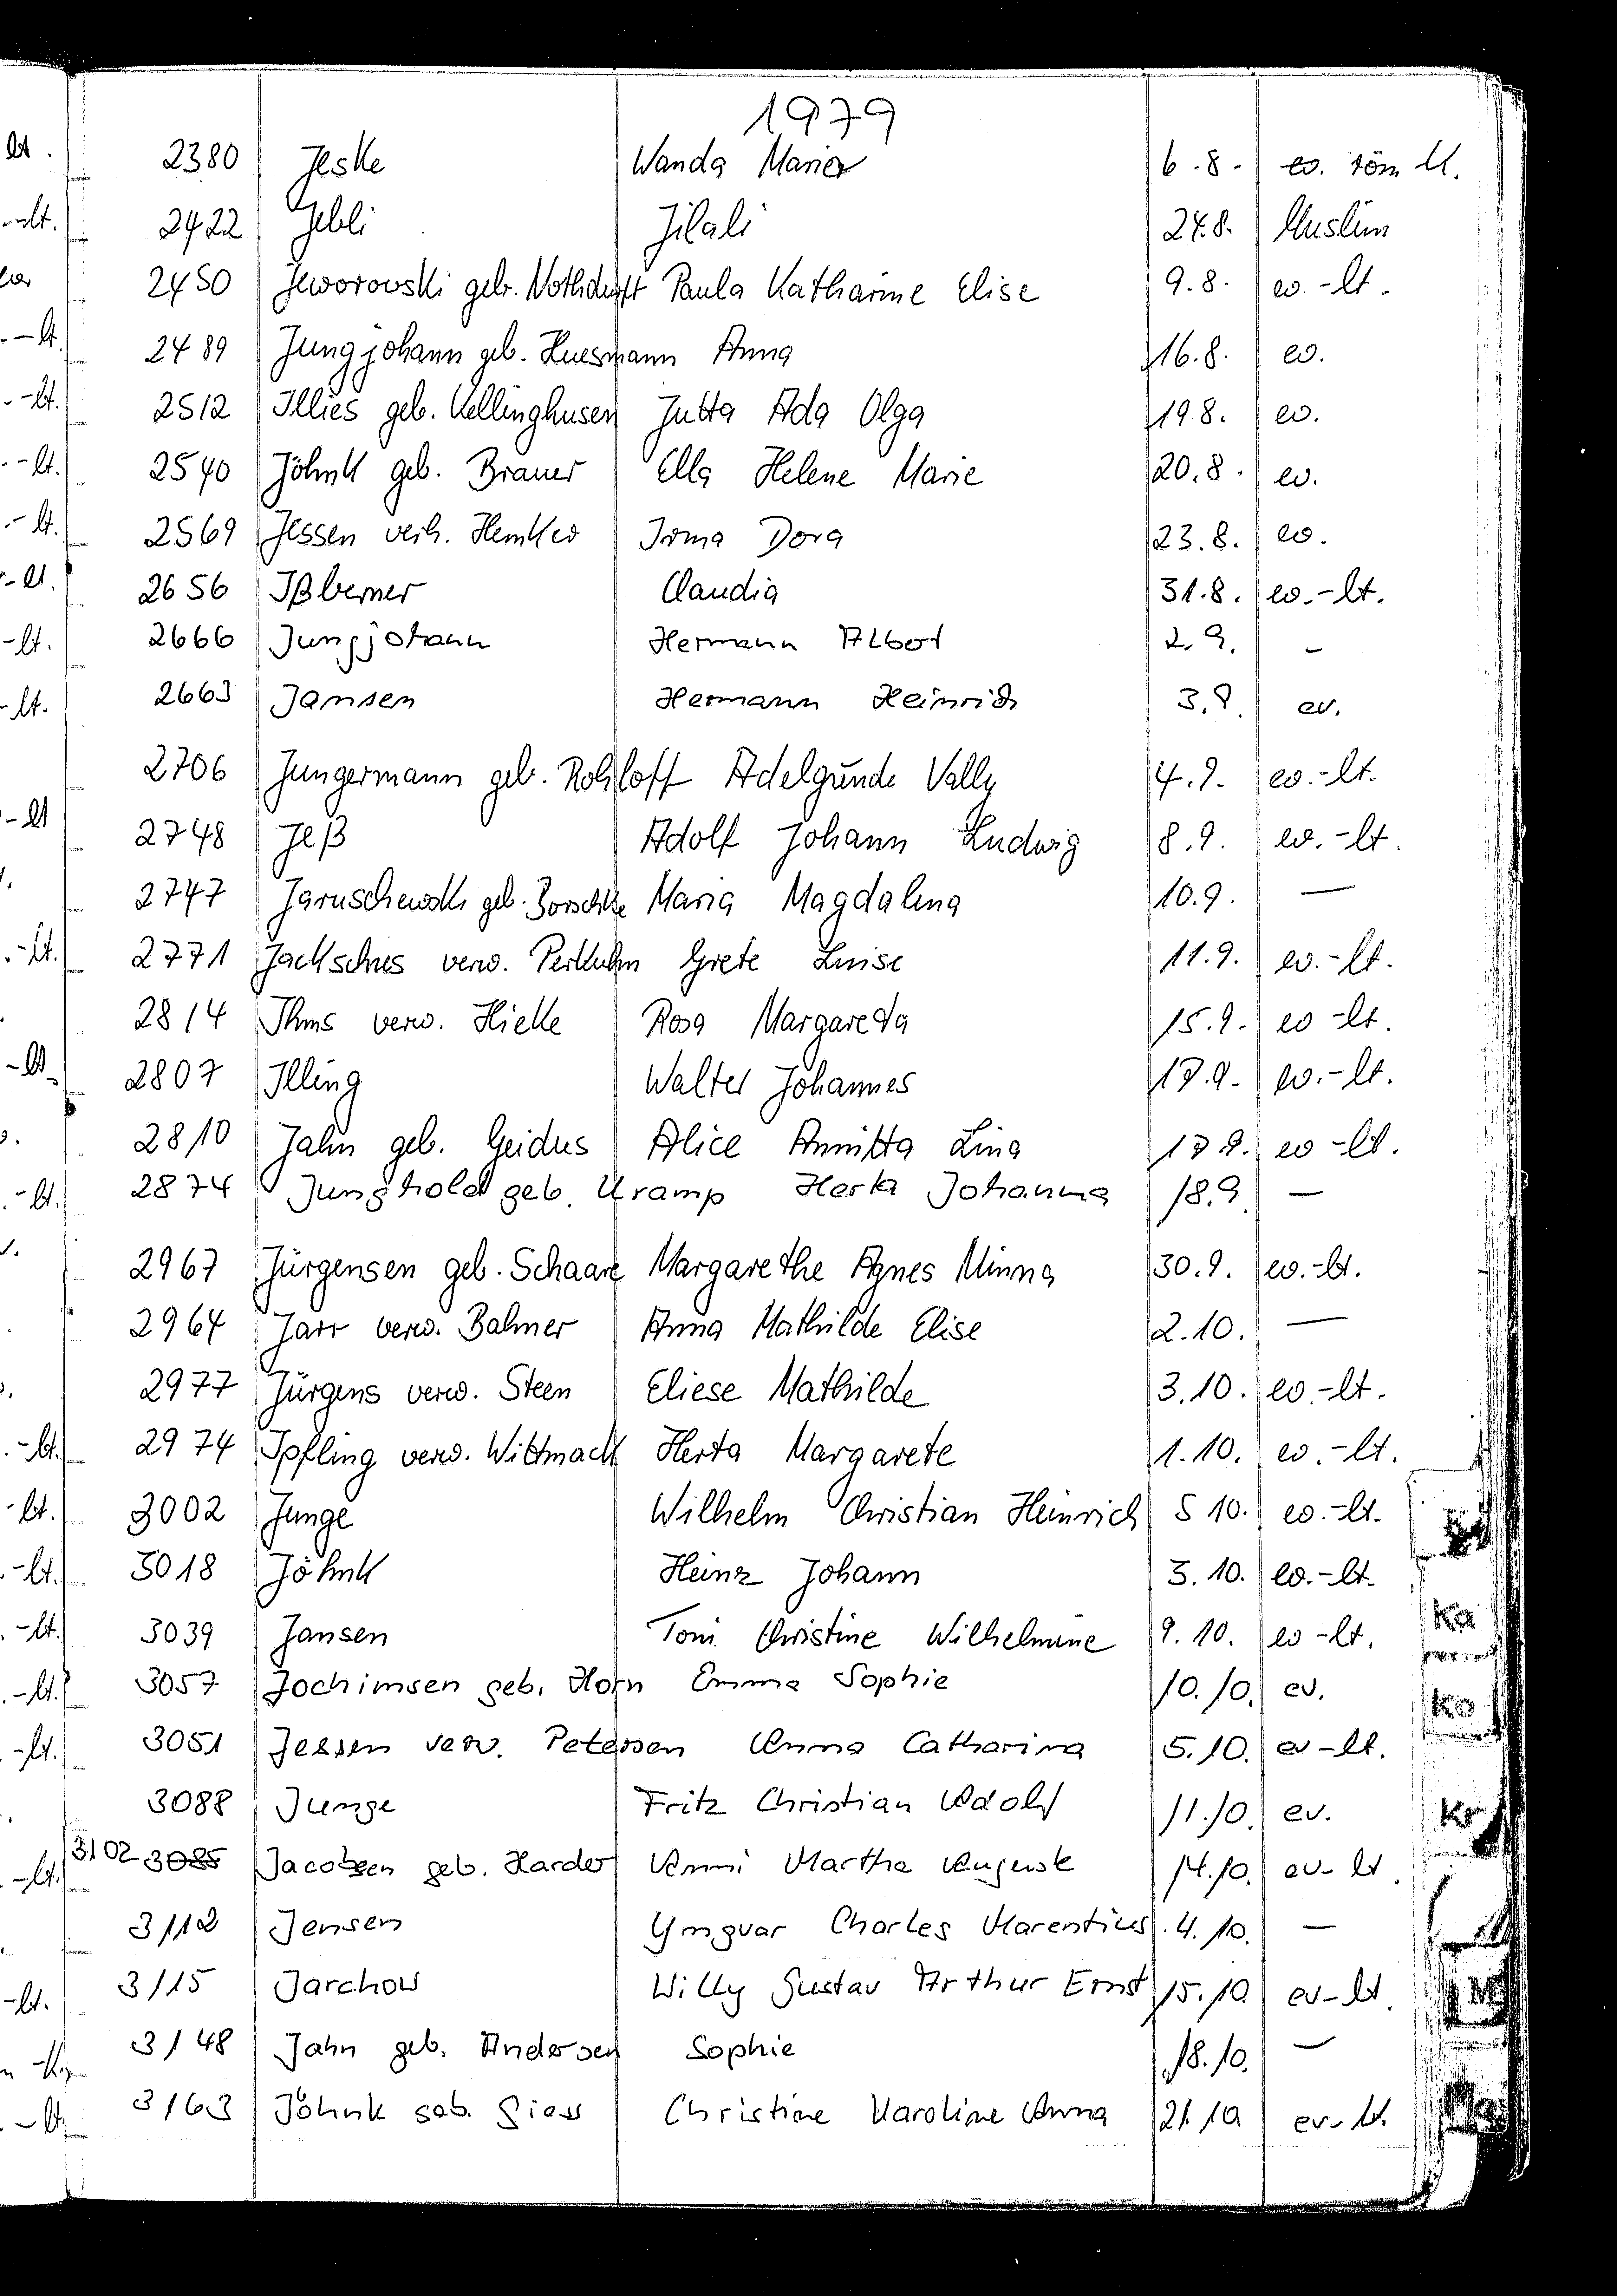 1979
2380 Jeske Wanda Maria 6.8. ev. röm K.
2422 Jebli Jilali 24.8. Muslim
2450 Jeworowski geb. Nothdurft Paula Katharine Elise 9.8. ev.-lt.
2489 Jungjohann geb. Huesmann Anna 16.8. ev.
2512 Illies geb. Kellinghusen Jutta Ada Olga 19 8. ev.
2540 Jöhnk geb. Brauer Ella Helene Marie 20.8. ev.
2569 Jessen verh. Irma Dora 23.8. ev.
2656 Ißberner Claudia 31.8. ev.-lt.
2666 Jungjohann Hermann Albert 2.9. -
2663 Jansen Hermann Heinrich 3.9. ev.
2706 Jungermann geb. Rohloff Adelgunde Vally 4.9. ev.-lt.
2748 Jeß Adolf Johann Ludwig 8.9. ev.-lt.
2747 Jaruschewski geb. Maria Magdalena 10.9. —
2771 Jackschies verw. Perkuhn Grete Luise 11.9. ev.-lt.
2814 Ihms verw. Hielke Rosa Margareta 15.9. ev-lt.
2807 Illing Walter Johannes 17.9. ev.-lt.
2810 Jahn geb. Geidus Alice Annitta Lina 17.9. ev-lt.
2874 Junghold geb. Kramp Herta Johanna 18.9. —
2967 Jürgensen geb. Schaare Margarethe Agnes Minna 30.9. ev.-lt.
2964 Jarr verw. Balmer Anna Mathilde Elise 2.10. —
2977 Jürgens verw. Steen Eliese Mathilde 3.10. ev.-lt.
2974 Ipfling verw. Wittmack Herta Margarete 1.10. ev.-lt.
3002 Junge Wilhelm Christian Heinrich 5 10. ev.-lt.
3018 Jöhnk Heinz Johann 3.10. ev.-lt.
3039 Jansen Toni Christine Wilhelmine 9.10. ev-lt.
3057 Jochimsen geb. Horn Emma Sophie 10.10. ev.
3051 Jessen verw. Petersen Anna Catharina 5.10. ev-lt.
3088 Junge Fritz Christian Adolf 11.10. ev.
3102 3085 Jacobsen geb. Harder Anni Martha Auguste 14.10. ev-lt.
3112 Jensen Yngvar Charles Marentius 4.10. —
3115 Jarchow Willy Gustav Arthur Ernst 15.10. ev-lt.
3148 Jahn geb. Andersen Sophie 18.10. —
3163 Jöhnk geb. Giess Christine Karoline Anna 21.10 ev-lt.
Ka
Ko
Kr
M